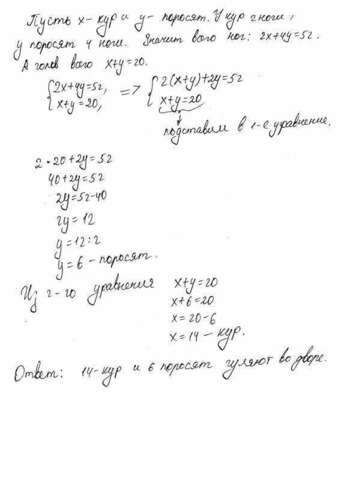 Пусть x - кур и y - поросят. У кур 2 ноги,
у поросят 4 ноги. Значит всего ног: 2x+4y=52.
А голов всего x+y=20.
{2x+4y=52, => {2(x+y)+2y=52
{x+y=20, {x+y=20
подставим в 1-е уравнение.
2·20+2y=52
40+2y=52
2y=52-40
2y=12
y=12:2
y=6 - поросят.
Из 2-го уравнения x+y=20
x+6=20
x=20-6
x=14 - кур.
Ответ: 14-кур и 6 поросят гуляют во дворе.